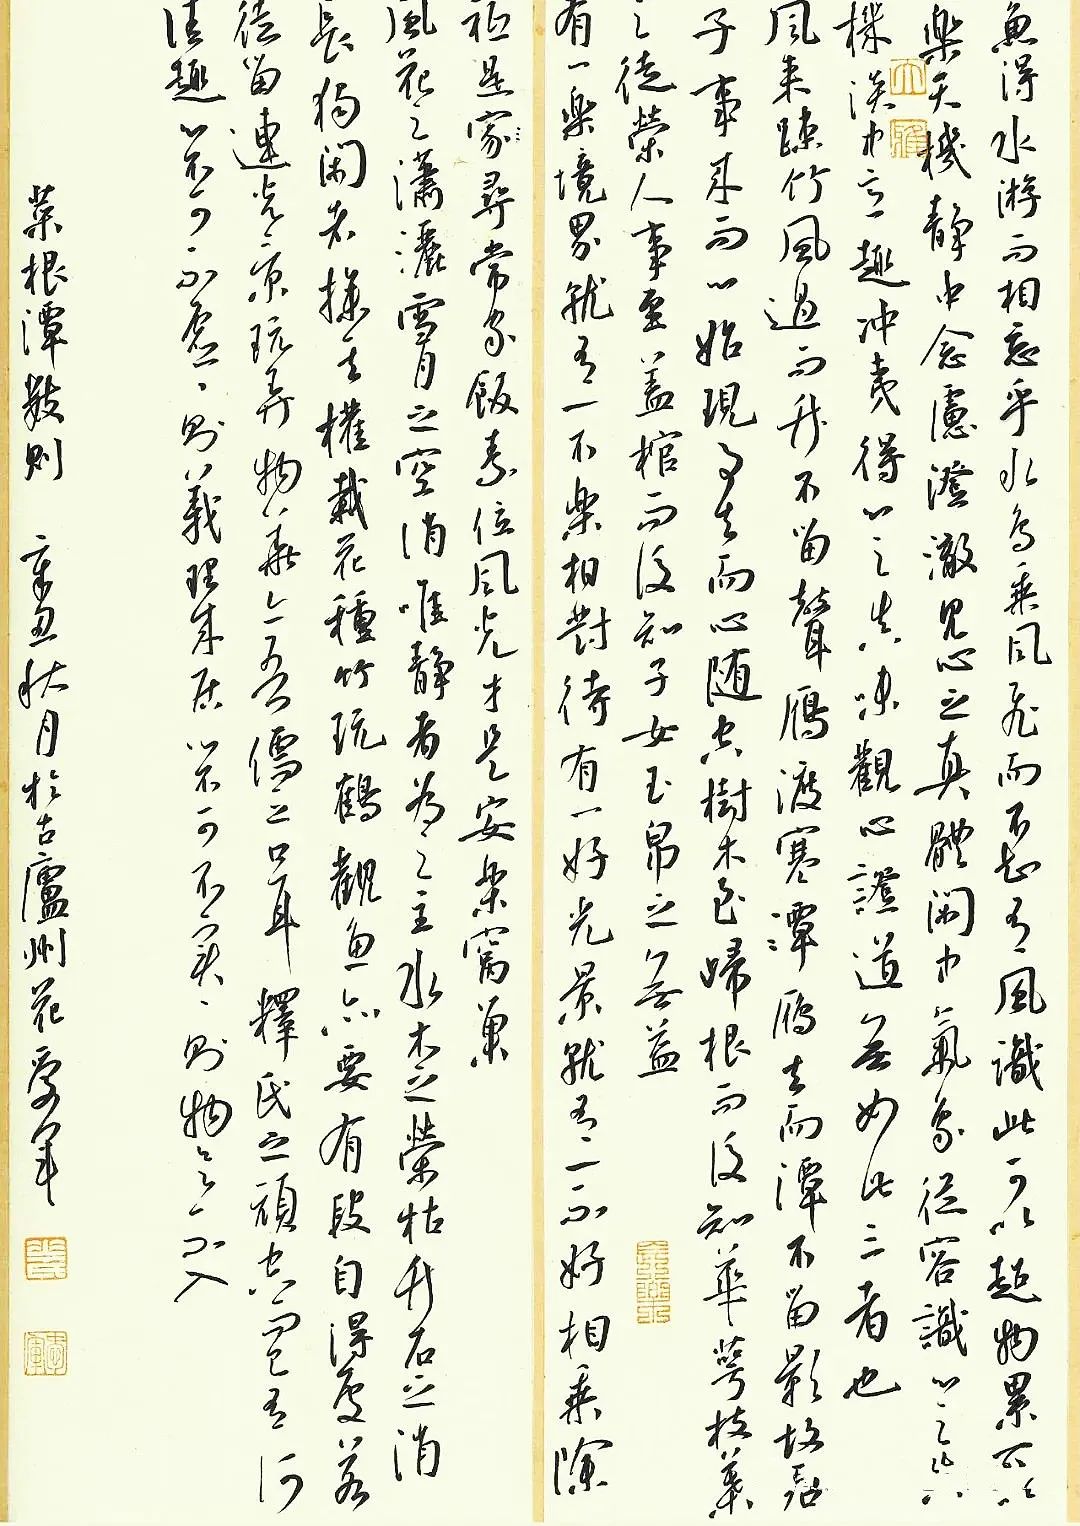 魚得水游而相忘乎水鳥乘風飛而不知有風識此可以超物累可以
樂天機靜中念慮澄澈見心之真體閑中氣象從容識心之真
機淡中意趣冲夷得心之真味觀心證道無如此三者也
風來疎竹風過而竹不留聲雁渡寒潭雁去而潭不留影故君
子事來而心始現事去而心随空樹木至歸根而後知華萼枝葉
之徒榮人事至蓋棺而後知子女玉帛之無益
有一樂境界就有一不樂相對待有一好光景就有一不好相乘除
祗是家尋常家飯素位風光才是安樂窩巢
風花之瀟灑雪月之空消唯靜者為之主水木之榮枯竹石之消
長獨閑者操其權栽花種竹玩鶴觀魚亦要有段自得處若
徒留連光景玩弄物華亦吾儒之口耳釋氏之頑空而已有何
佳趣心不可不虛虛則義理來居心不可不實實則物欲不入
菜根譚數則 辛丑秋月於古廬州花